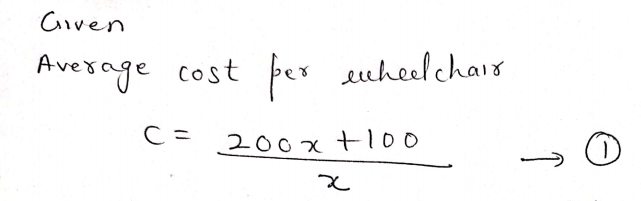 Given
Average cost per wheelchair
C = 200x + 100 / x → ①